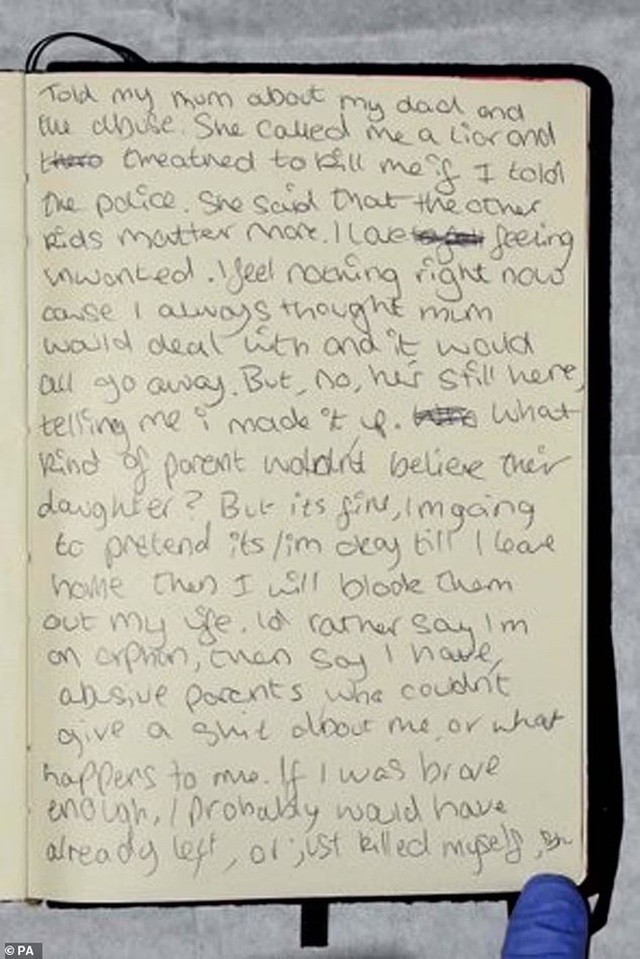 Told my mum about my dad and
the abuse. She called me a liar and
threatned to kill me if I told
the police. She said that the other
kids matter more. I love feeling
unwanted. I feel nothing right now
cause I always thought mum
would deal with and it would
all go away. But, no, he's still here,
telling me i made it up. What
kind of parent wouldn't believe their
daughter? But its fine, I'm going
to pretend its/im okay till I leave
home then I will block them
out my life. I'd rather say I'm
an orphan, then say I have
abusive parents who couldn't
give a shit about me, or what
happens to me. If I was brave
enough, I probably would have
already left, or just killed myself,
© PA